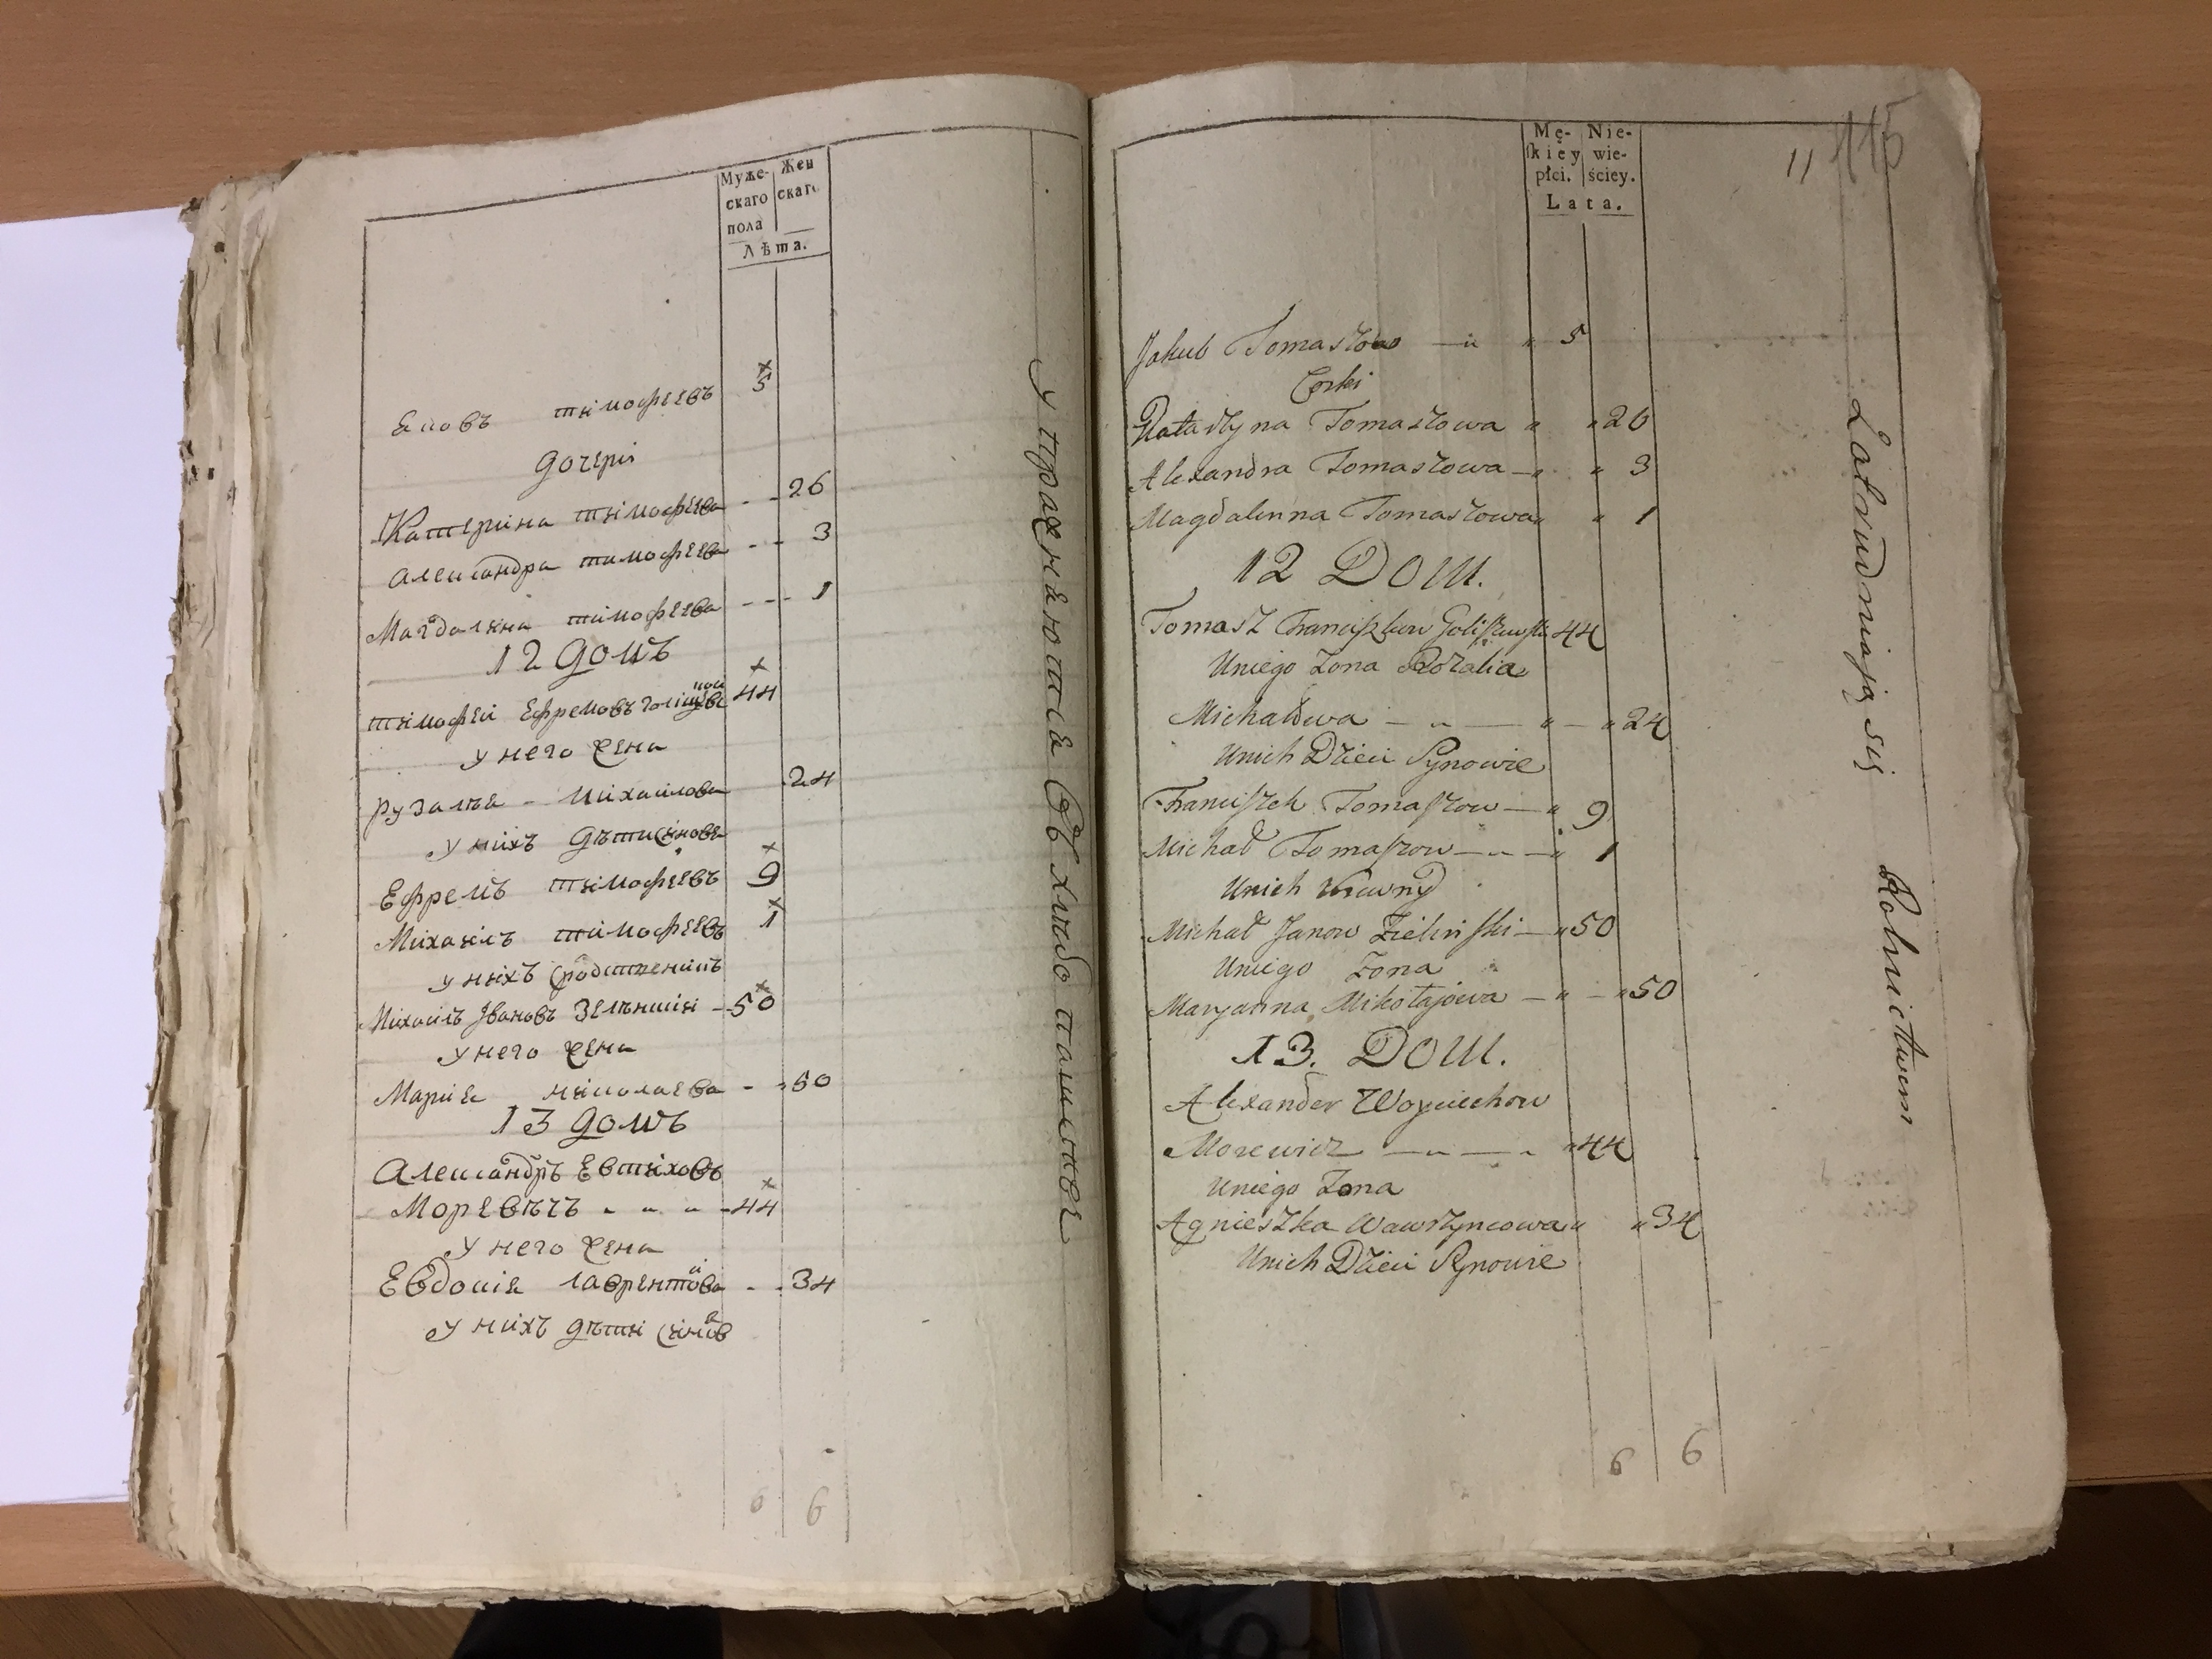 Муже- Жен
скаго скаго
пола
Лѣта.
Яковъ тимофеевъ 5
дочери
Катерина тимофеева - - 26
Александра тимофеева - - - 3
Магдалина тимофеева - - - 1
12 домъ
тимофей Ефремовъ 44
у него жена
рузалѣя - михайлова 24
у нихъ дѣти синовя
Ефремъ тимофеевъ 9
Михаилъ тимофеевъ 1
у нихъ сродственикъ
Михаилъ Ивановъ Зелѣнски - 50
у него жена
Мария николаева - - 50
13 домъ
Александръ Евтиховъ
Моревѣчъ - - - - 44
у него жена
Евдокия лаврентиова - - 34
у нихъ дѣти синов
6 6
упражняются Обхлѣбопашновя
Mę- Nie-
ſkiéy wie-
płci. ściey.
Lata.
11 115
Jakub Tomaszow 5
Corki
Katarzyna Tomaszowa " " 26
Alexandra Tomaszowa - " " 3
Magdalenna Tomaszowa " " 1
12 Dom.
Tomasz Franciszkow 44
Uniego Zona Rozalia
Michałowa - " - " - " 24
Unich Dzieci Synowie
Franciszek Tomaszow - " 9
Michał Tomaszow - " - " 1
Unich Krewny
Michał Janow Zielinſki - " 50
Uniego Zona
Maryanna Mikołajowa - " - " 50
13. Dom.
Alexander Woyciechow
Morewicz - " - " 44
Uniego Zona
Agnieszka Wawrzyncowa " " 34
Unich Dzieci Synowie
6 6
Zatrudniają się Rolnictwem